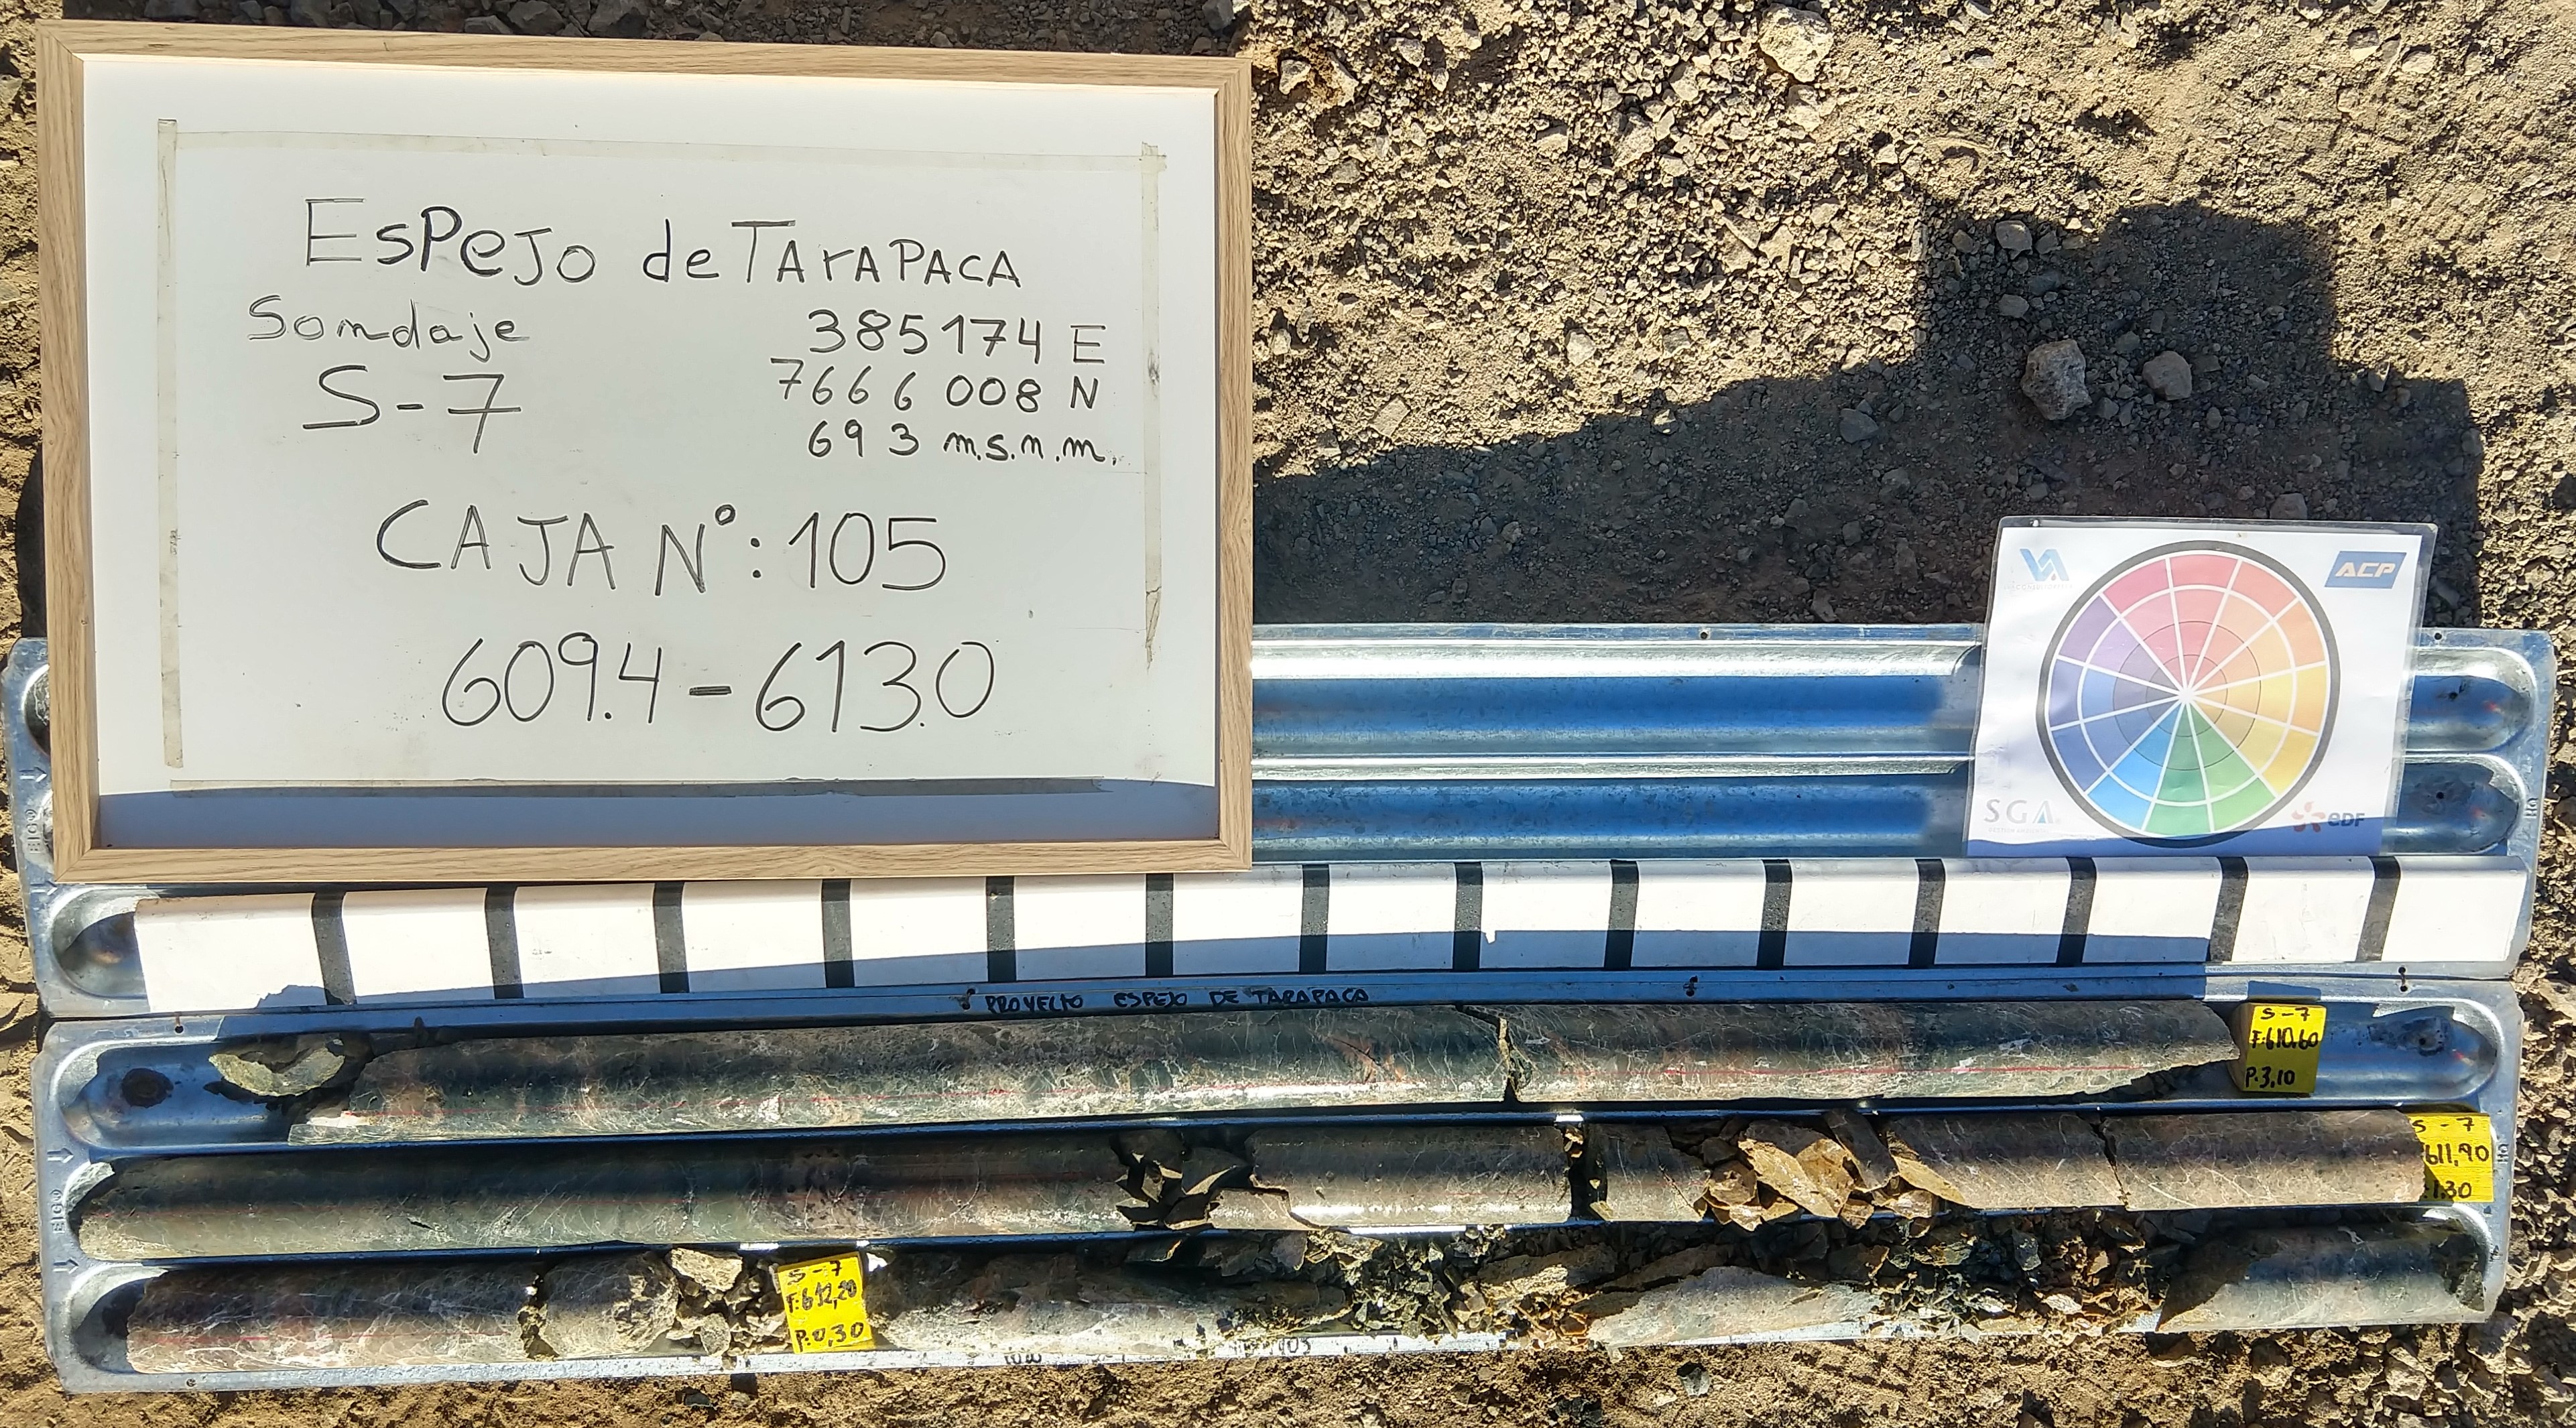 EsPeJo de TArAPACA
Sondaje
385174 E
S-7
7666008 N
693 m.s.n.m.
CAJA N°: 105
609.4 - 613.0
VA
ACP
SGA
edf
PROYECTO ESPEJO DE TARAPACA
S-7
F:610,60
P.3,10
S-7
611,90
1.30
S-7
F:612,20
P:0,30
105